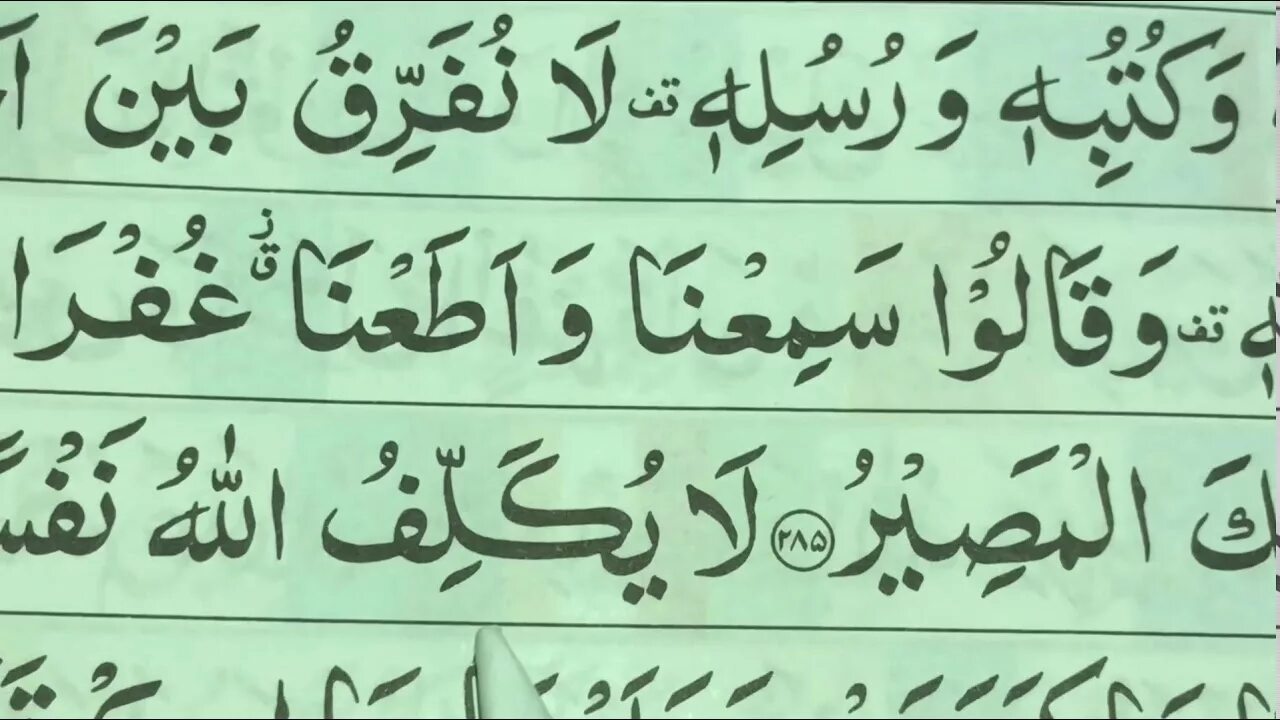 وَكُتُبِهٖ وَرُسُلِهٖ تف لَا نُفَرِّقُ بَيْنَ
تف وَقَالُوْا سَمِعْنَا وَاَطَعْنَا ز ق غُفْرَا
كَ الْمَصِيْرُ ۲۸۵ لَا يُكَلِّفُ اللّٰهُ نَفْسً